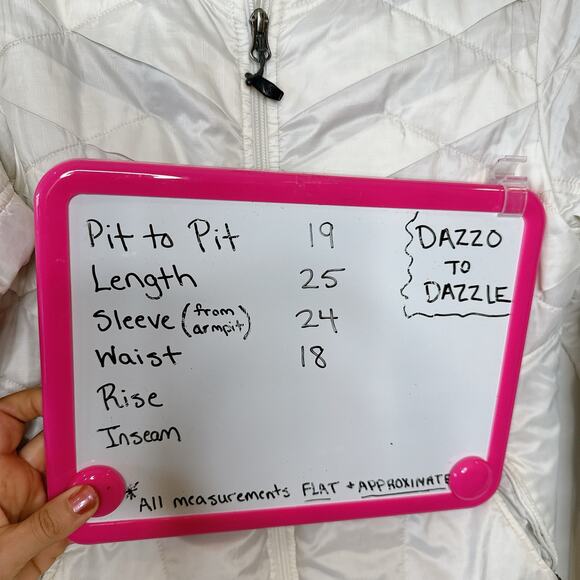 Pit to Pit 19
Length 25
Sleeve (from armpit) 24
Waist 18
Rise
Inseam
* All measurements FLAT + APPROXIMATE
DAZZO
TO
DAZZLE